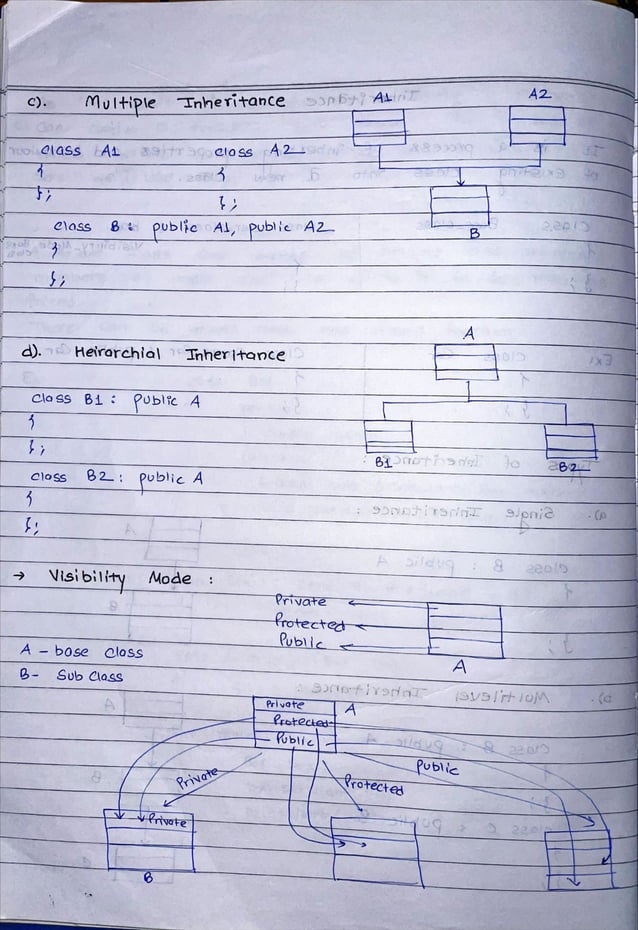 c). Multiple Inheritance
A1
A2
class A1
class A2
{
{
};
};
B
class B : public A1, public A2
{
};
A
d). Heirarchial Inheritance
class B1 : public A
{
};
B1
B2
class B2 : public A
{
};
→ Visibility Mode :
Private
Protected
Public
A
A - base class
B- Sub class
Private
A
Protected
Public
Private
Protected
Public
Private
B